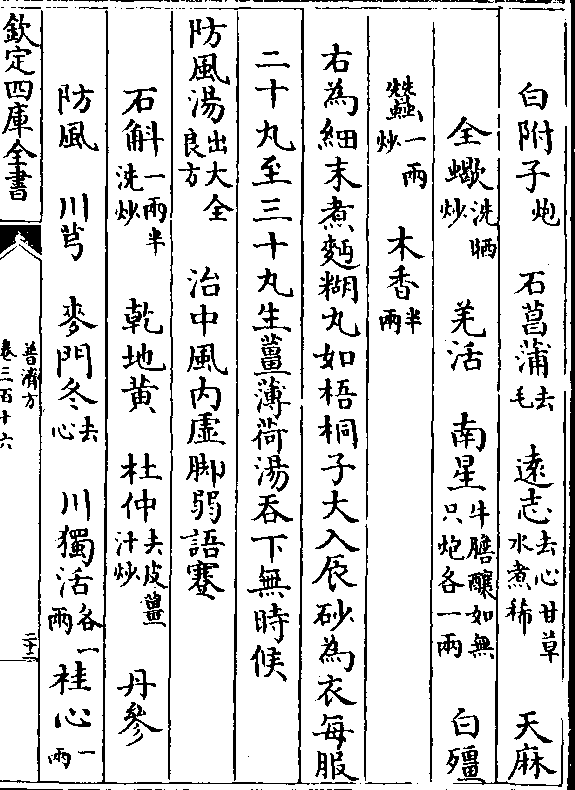 白附子炮 石菖蒲去毛 遠志去心甘草水煮稀 天麻
全蠍洗晒炒 羌活 南星牛膽釀如無只炮各一兩 白殭
蠶一兩炒 木香半兩
右為細末煮麪糊丸如梧桐子大入辰砂為衣每服
二十九至三十丸生薑薄荷湯吞下無時候
防風湯出大全良方 治中風内虛脚弱語謇
石斛一兩半洗炒 乾地黄 杜仲去皮薑汁炒 丹參
防風 川芎 麥門冬去心 川獨活各一兩 桂心一兩
欽定四庫全書
普濟方
卷三百十六
二十二